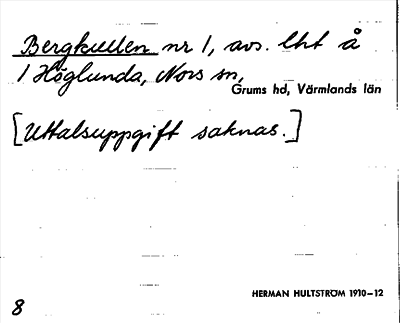 Bergkullen nr 1, avs. lht å
1 Höglunda, Nors sn,
Grums hd, Värmlands län
[Uttalsuppgift saknas.]
HERMAN HULTSTRÖM 1910–12
8